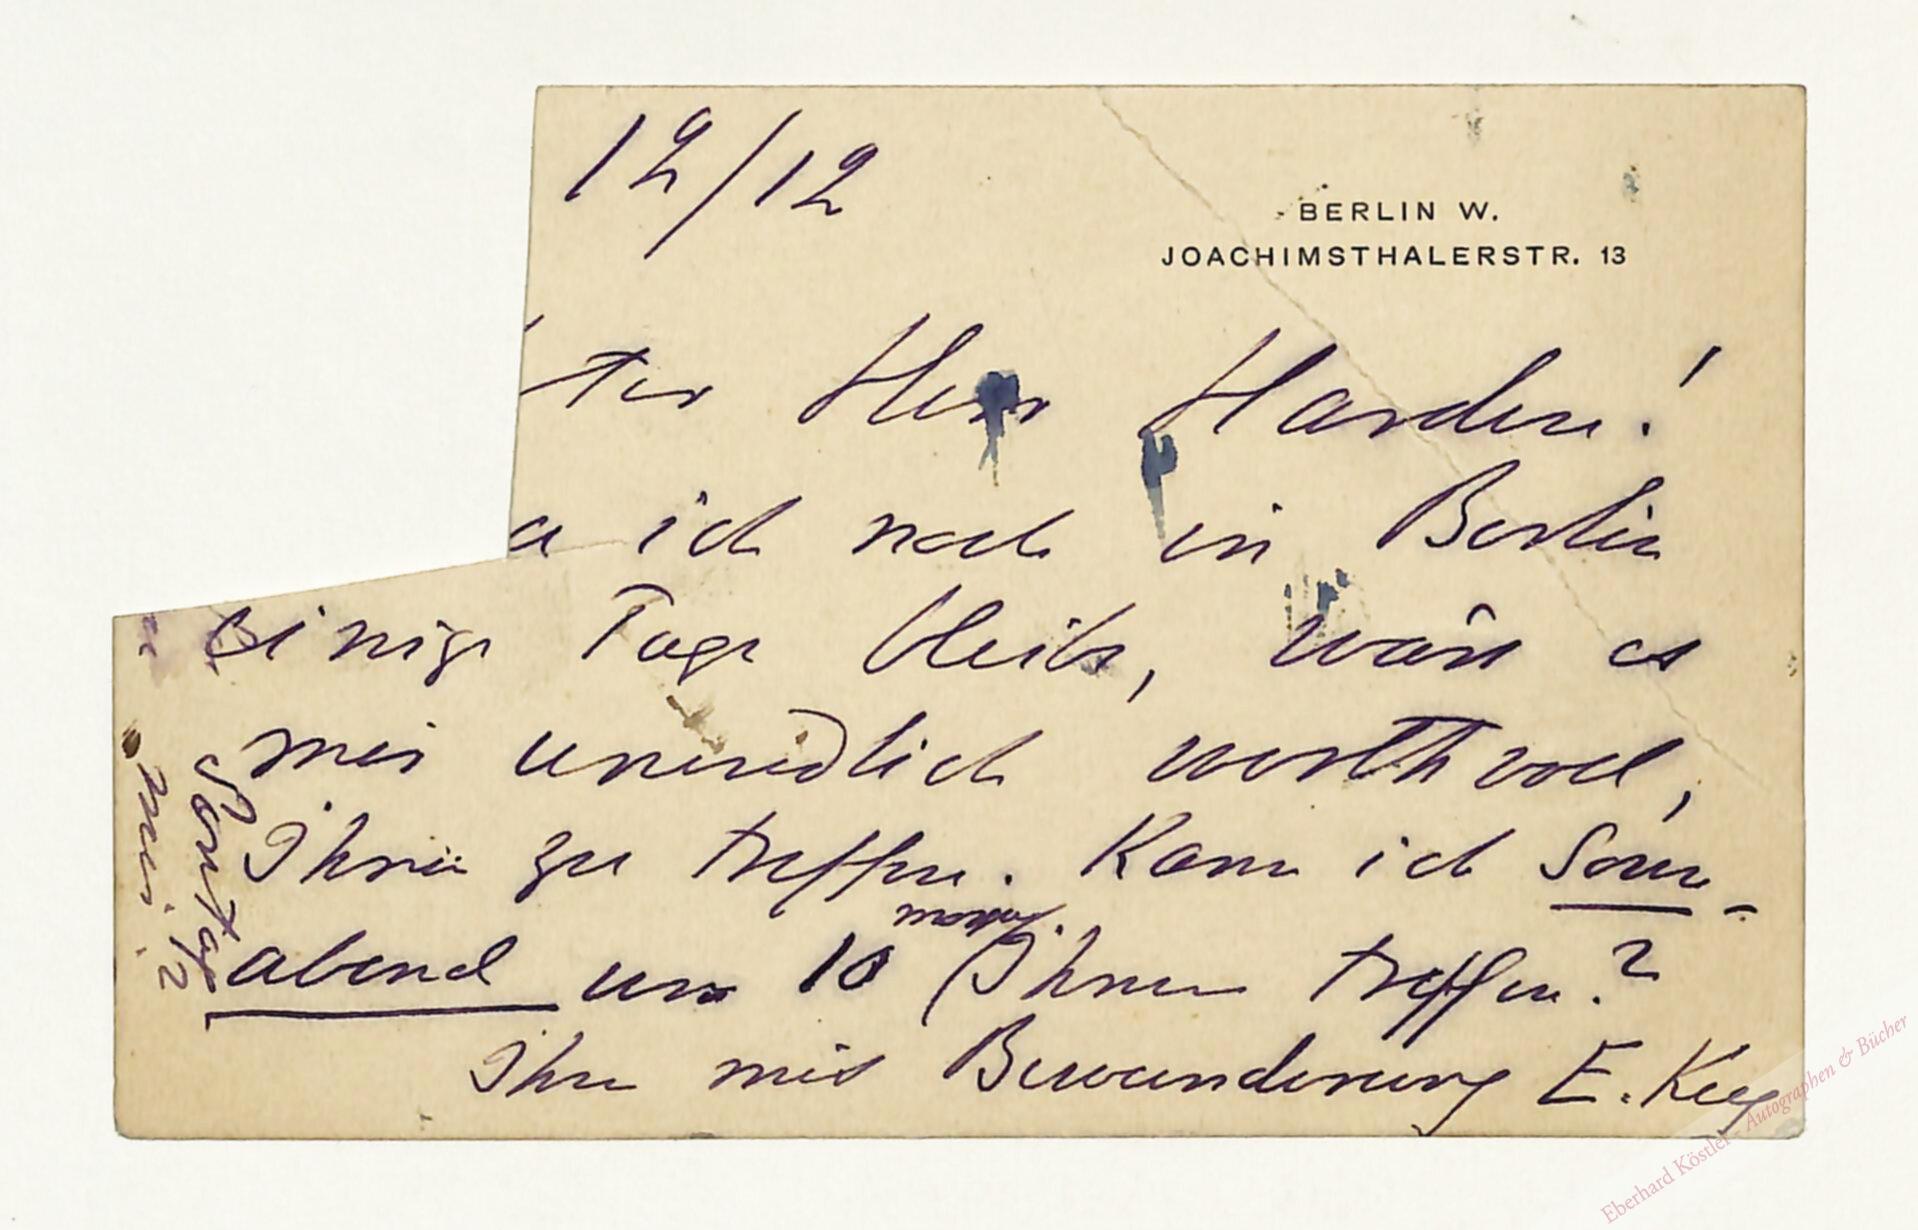 12/12
BERLIN W.
JOACHIMSTHALERSTR. 13
ter Herr Harden!
a ich noch in Berlin
einige Tage bleibe, wäre es
mir unendlich werthvoll,
Ihnen zu treffen. Kann ich Sonn-
abend um 10 Ihnen treffen?
Ihre mit Bewunderung E. Key
Eberhard Köstler - Autographen & Bücher